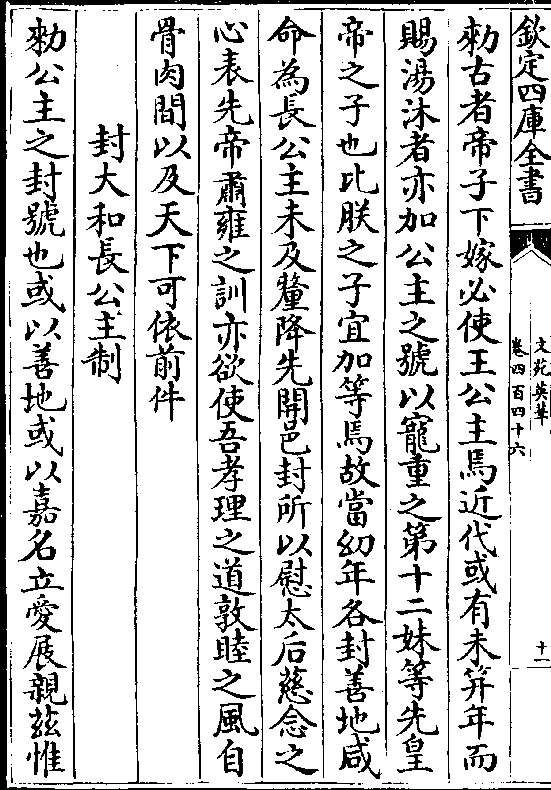 欽定四庫全書
文苑英華
卷四百四十六
十一
勑古者帝子下嫁必使王公主焉近代或有未筓年而
賜湯沐者亦加公主之號以寵重之第十二妹等先皇
帝之子也比朕之子宜加等焉故當幼年各封善地咸
命為長公主未及釐降先開邑封所以慰太后慈念之
心表先帝肅雍之訓亦欲使吾孝理之道敦睦之風自
骨肉間以及天下可依前件
封大和長公主制
勑公主之封號也或以善地或以嘉名立愛展親茲惟